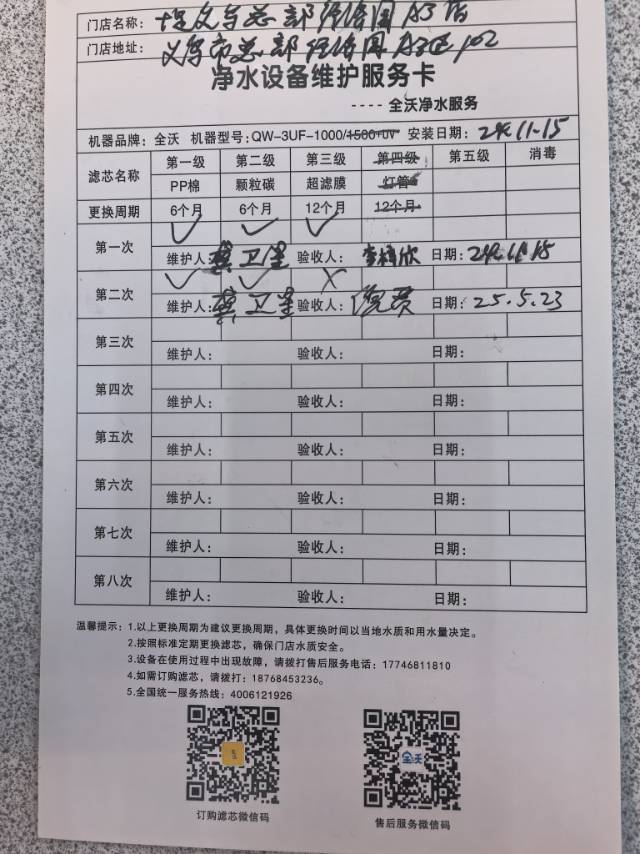 门店名称: 义乌总部经济园A3店
门店地址: 义乌市总部经济园A3区102
净水设备维护服务卡
---- 全沃净水服务
机器品牌: 全沃 机器型号: QW-3UF-1000/1500+UV 安装日期: 24.11.15
滤芯名称 第一级 第二级 第三级 第四级 第五级 消毒
PP棉 颗粒碳 超滤膜 灯管
更换周期 6个月 6个月 12个月 12个月
第一次 ✓ ✓ ✓
维护人: 卫星 验收人: 欣 日期: 24.11.15
第二次 ✓ ✓ ×
维护人: 卫星 验收人: 日期: 25.5.23
第三次
维护人: 验收人: 日期:
第四次
维护人: 验收人: 日期:
第五次
维护人: 验收人: 日期:
第六次
维护人: 验收人: 日期:
第七次
维护人: 验收人: 日期:
第八次
维护人: 验收人: 日期:
温馨提示: 1.以上更换周期为建议更换周期，具体更换时间以当地水质和用水量决定。
2.按照标准定期更换滤芯，确保门店水质安全。
3.设备在使用过程中出现故障，请拨打售后服务电话: 17746811810
4.如需订购滤芯，请拨打: 18768453236。
5.全国统一服务热线: 4006121926
全沃
订购滤芯微信码 售后服务微信码